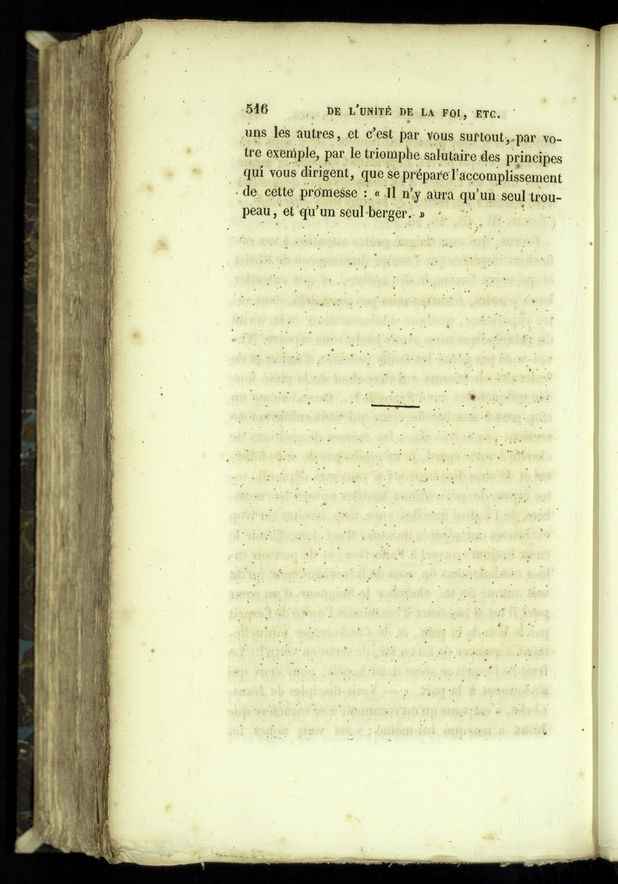 516 DE L'UNITÉ DE LA FOI, ETC.
uns les autres, et c'est par vous surtout, par vo-
tre exemple, par le triomphe salutaire des principes
qui vous dirigent, que se prépare l'accomplissement
de cette promesse : « Il n'y aura qu'un seul trou-
peau, et qu'un seul berger. »